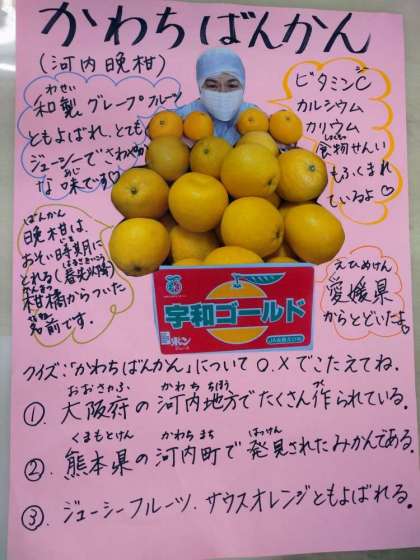 かわちばんかん
(河内晩柑)
わせい
和製グレープフルーツ
ともよばれ、とても
ジューシーでさわやか
あじ
な味です♡
ビタミンC
シー
カルシウム
カリウム
しょくもつ
食物せんい
もふくまれ
ているよ♡
ばんかん
晩柑は、
じき
おそい時期に
はるさきいこう
とれる(春先以降)
かんきつ
柑橘からついた
なまえ
名前です。
えひめけん
愛媛県
からとどいたよ。
宇和ゴールド
JAにしうわ
クイズ:「かわちばんかん」について○.×でこたえてね。
おおさかふ かわち ちほう つく
①. 大阪府の河内地方でたくさん作られている。
くまもとけん かわち まち はっけん
②. 熊本県の河内町で発見されたみかんである。
③. ジューシーフルーツ.サウスオレンジともよばれる。